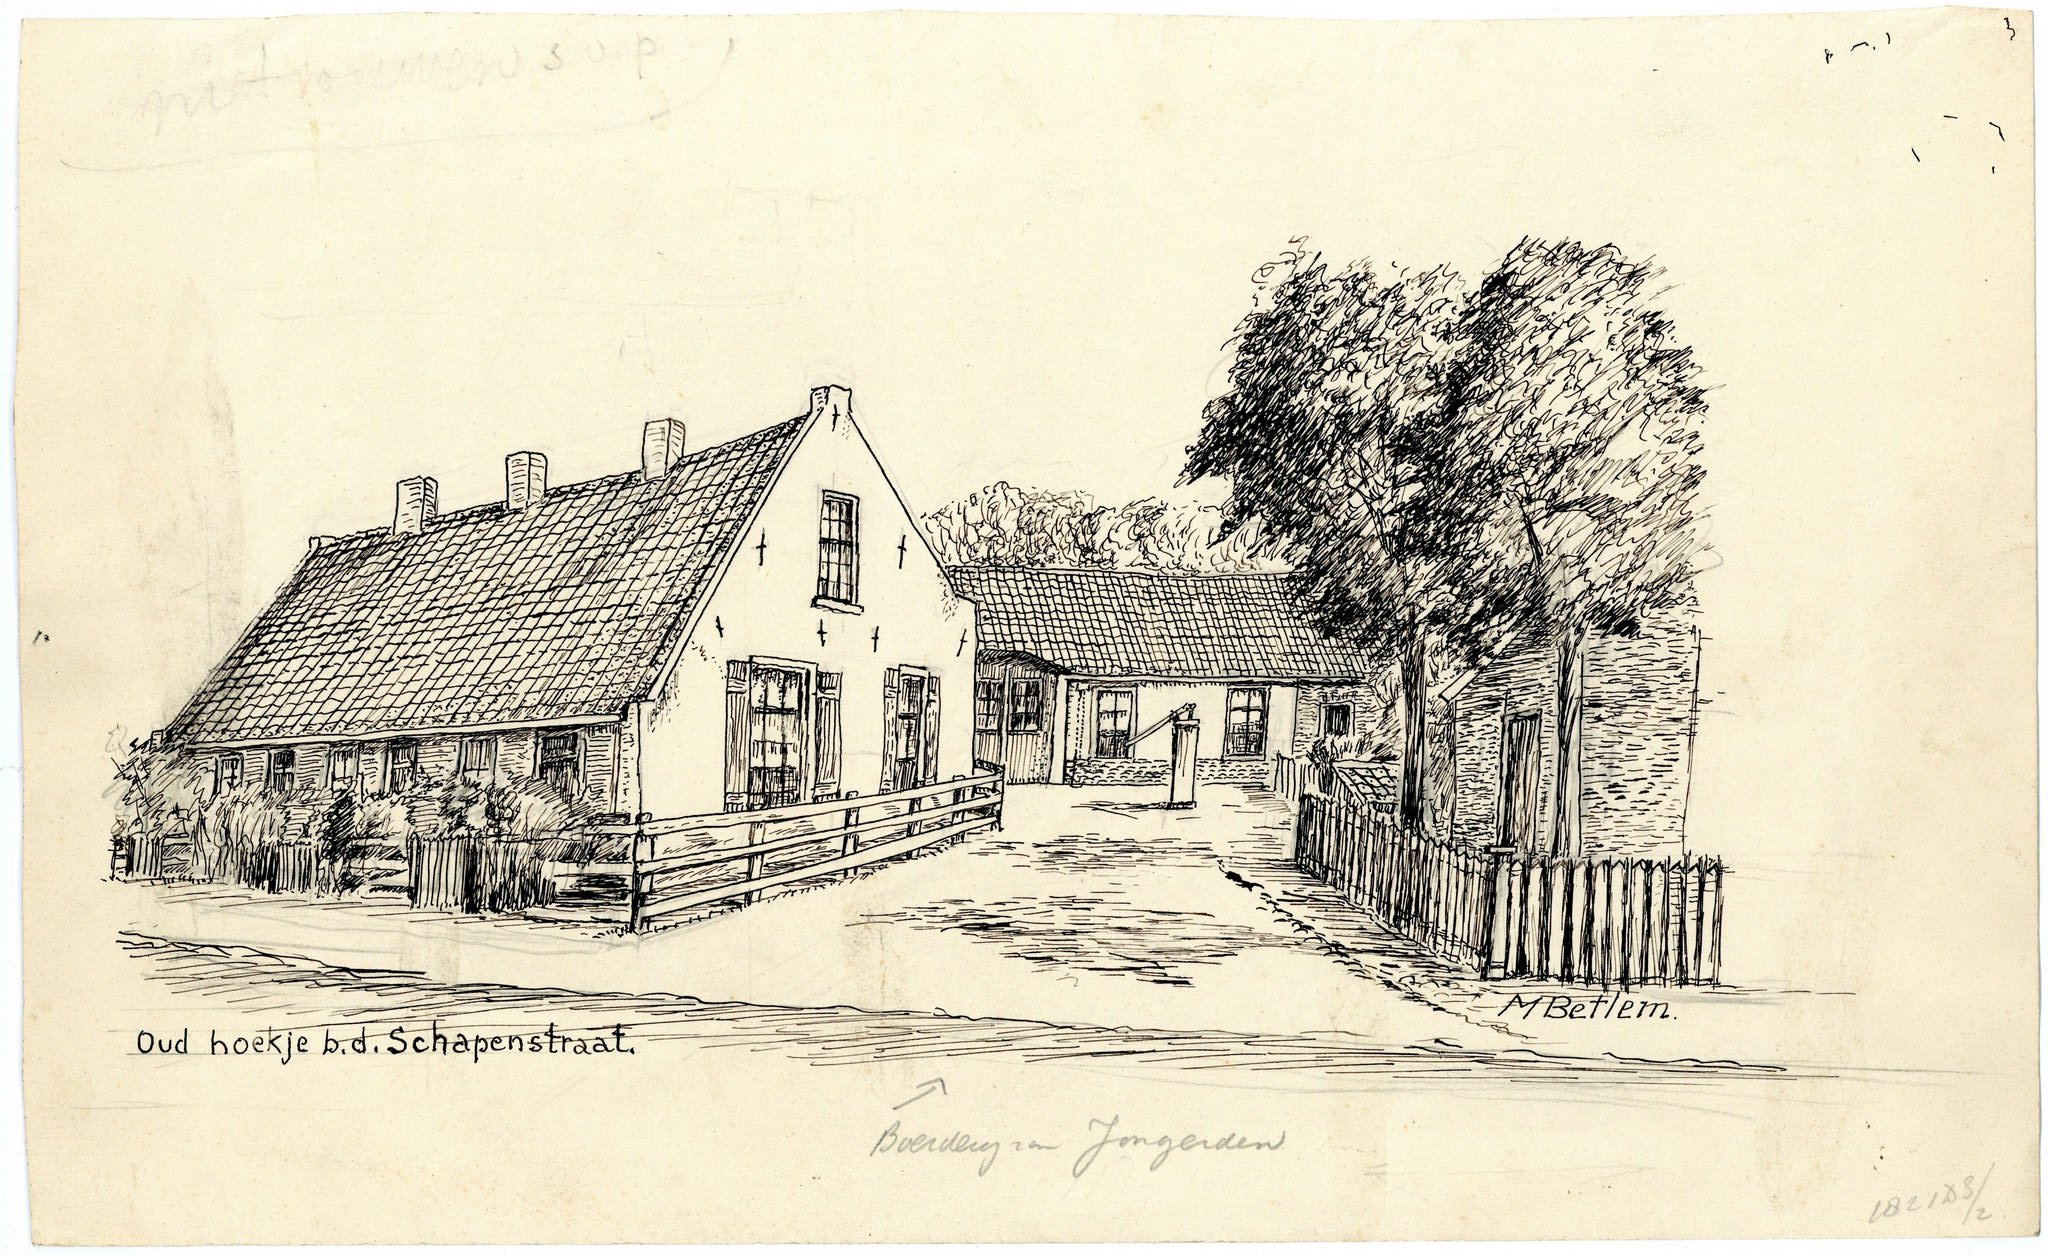 niet vouwen s.v.p
Oud hoekje b.d. Schapenstraat.
M Betlem.
Boerderij van Jongerden